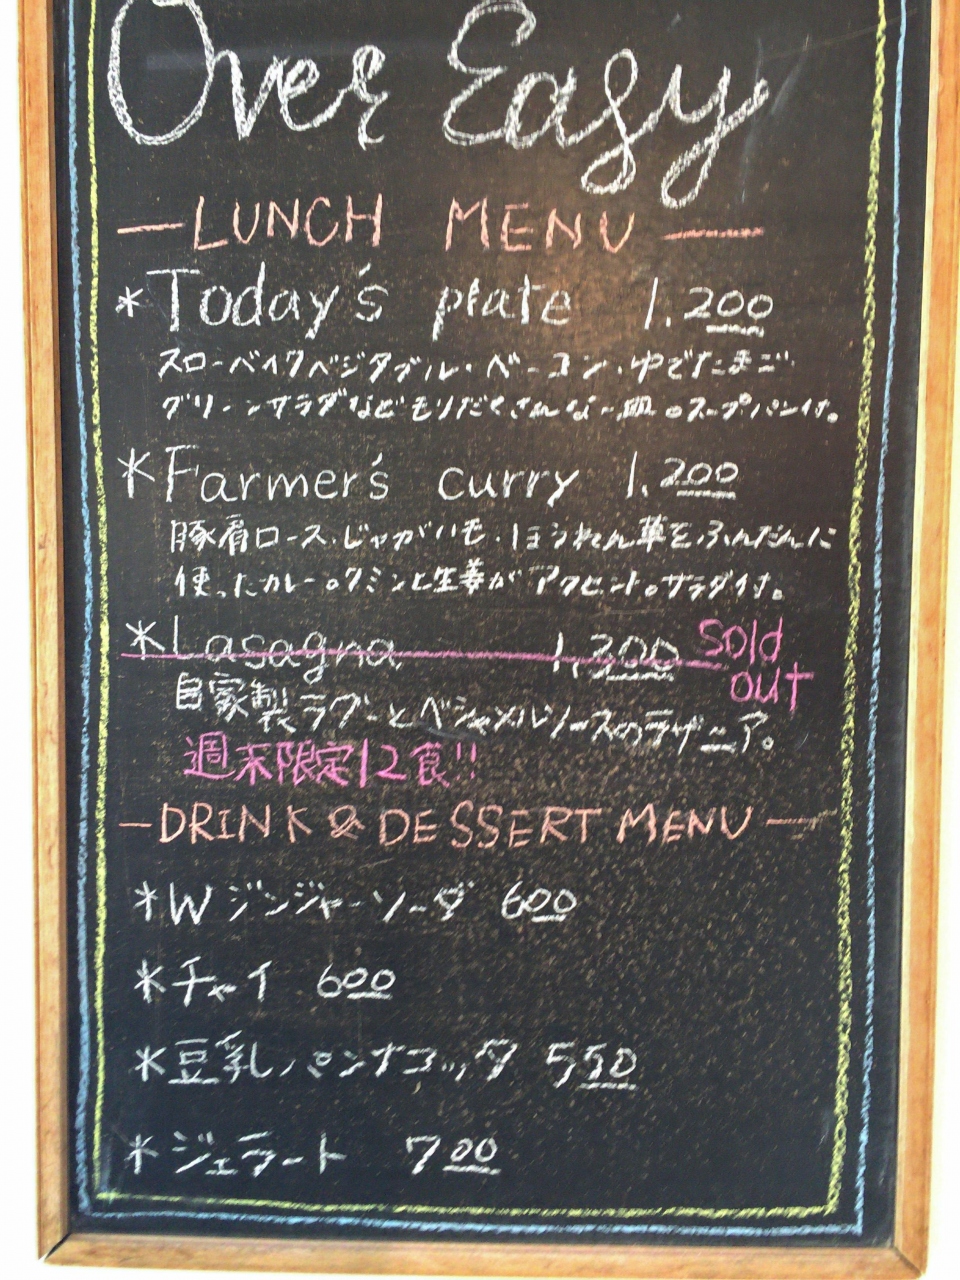 Over Easy
—LUNCH MENU—
*Today's plate 1,200
スローベイクベジタブル・ベーコン・ゆでたまご
グリーンサラダなどもりだくさんな一皿。スープパン付。
*Farmer's curry 1,200
豚肩ロース・じゃがいも・ほうれん草をふんだんに
使ったカレー。クミンと生姜がアクセント。サラダ付。
*Lasagna 1,300 sold out
自家製ラグーとベシャメルソースのラザニア。
週末限定12食!!
—DRINK & DESSERT MENU—
*Wジンジャーソーダ 600
*チャイ 600
*豆乳パンナコッタ 550
*ジェラート 700